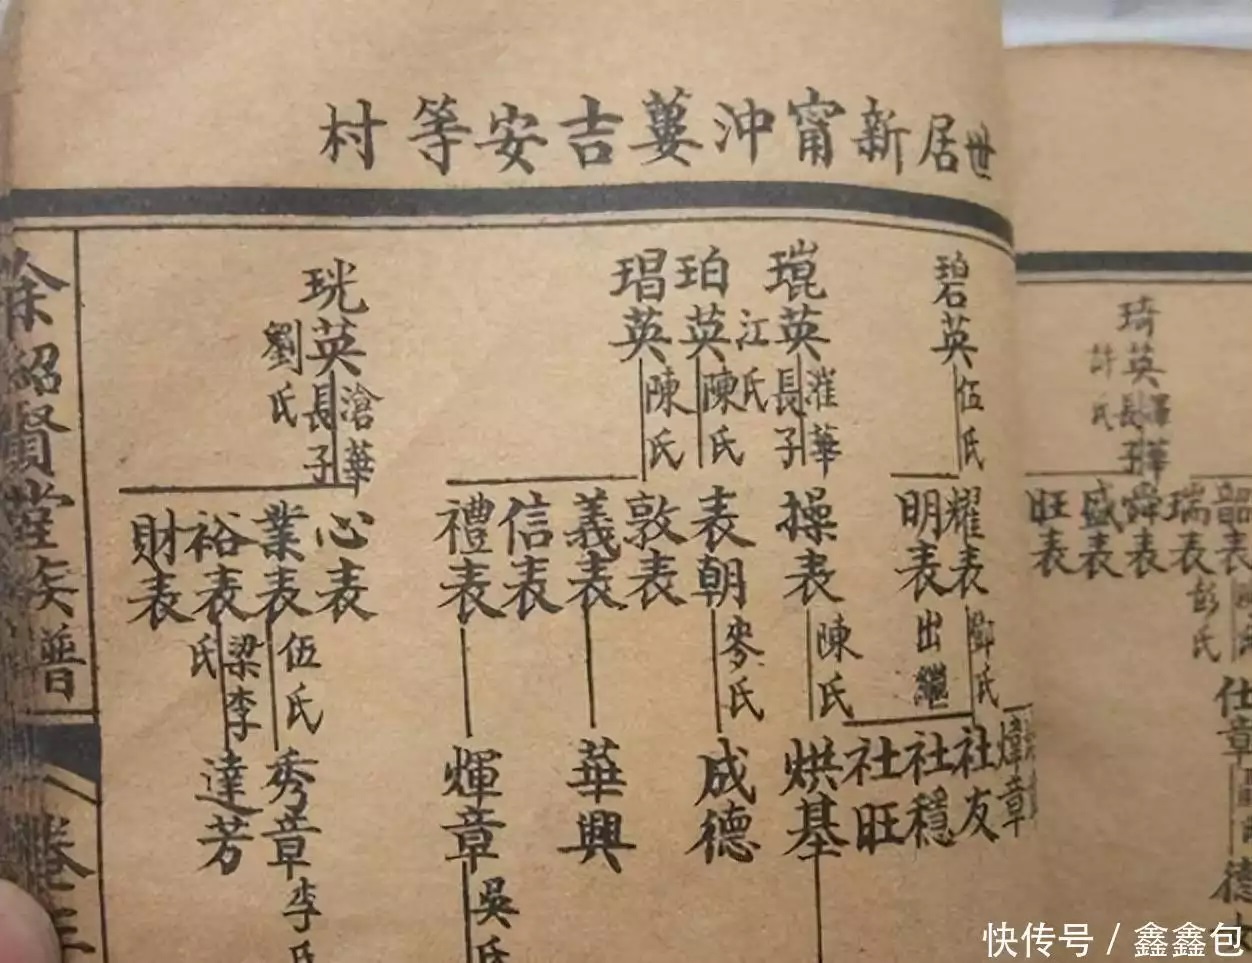 世居新甯沖蔞吉安等村
碧英
伍氏
耀表
明表
出繼
鄧氏
社友
社穩
社旺
煒章
琨英
江氏
漼華
長子
操表
陳氏
烘基
珀英
陳氏
表朝
麥氏
成德
琩英
陳氏
敦表
義表
信表
禮表
華興
煇章
吳氏
珖英
劉氏
滄華
長子
心表
業表
裕表
財表
伍氏
梁李氏
秀章
達芳
李氏
余紹賢堂族譜
卷三
琦英
許氏
長子
韶表
瑞表
舜表
盛表
旺表
彭氏
仕章
德
快传号 / 鑫鑫包